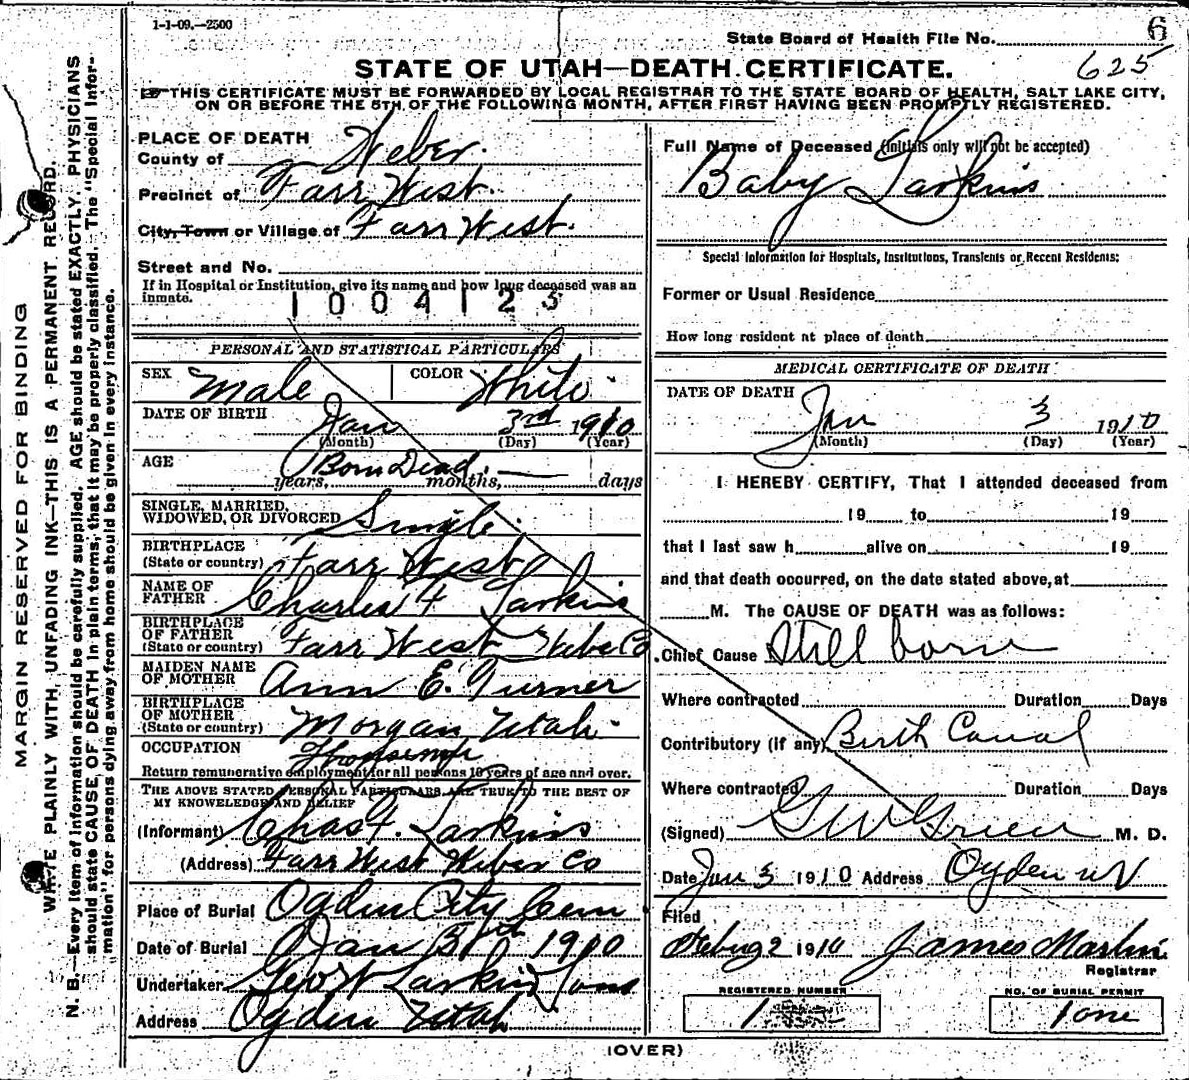 1-1-09.—2500
6
State Board of Health File No.
625
STATE OF UTAH—DEATH CERTIFICATE.
THIS CERTIFICATE MUST BE FORWARDED BY LOCAL REGISTRAR TO THE STATE BOARD OF HEALTH, SALT LAKE CITY,
ON OR BEFORE THE 5TH OF THE FOLLOWING MONTH, AFTER FIRST HAVING BEEN PROMPTLY REGISTERED.
MARGIN RESERVED FOR BINDING
WRITE PLAINLY WITH UNFADING INK—THIS IS A PERMANENT RECORD.
N. B.—Every item of information should be carefully supplied. AGE should be stated EXACTLY. PHYSICIANS
should state CAUSE OF DEATH in plain terms, that it may be properly classified. The "Special Infor-
mation" for persons dying away from home should be given in every instance.
PLACE OF DEATH
County of Weber.
Precinct of Farr West.
City, Town or Village of Farr West.
Street and No.
If in Hospital or Institution, give its name and how long deceased was an
inmate.
1004125
PERSONAL AND STATISTICAL PARTICULARS
SEX Male COLOR White
DATE OF BIRTH Jan 3rd 1910
(Month) (Day) (Year)
AGE Born Dead.
years, months, days
SINGLE, MARRIED,
WIDOWED, OR DIVORCED Single
BIRTHPLACE
(State or country) Farr West
NAME OF
FATHER Charles F Larkins
BIRTHPLACE
OF FATHER
(State or country) Farr West Weber Co
MAIDEN NAME
OF MOTHER Ann E. Turner
BIRTHPLACE
OF MOTHER
(State or country) Morgan Utah.
OCCUPATION
Return remunerative employment for all persons 10 years of age and over.
THE ABOVE STATED PERSONAL PARTICULARS ARE TRUE TO THE BEST OF
MY KNOWELEDGE AND BELIEF
(Informant) Chas F. Larkins
(Address) Farr West Weber Co
Place of Burial Ogden City Cem
Date of Burial Jan 1910
Undertaker Larkin Sons
Address Ogden Utah
Full Name of Deceased (Initials only will not be accepted)
Baby Larkins
Special Information for Hospitals, Institutions, Transients or Recent Residents:
Former or Usual Residence
How long resident at place of death
MEDICAL CERTIFICATE OF DEATH
DATE OF DEATH
Jan 3 1910
(Month) (Day) (Year)
I HEREBY CERTIFY, That I attended deceased from
19 to 19
that I last saw h alive on 19
and that death occurred, on the date stated above, at
M. The CAUSE OF DEATH was as follows:
Chief Cause Still born
Where contracted Duration Days
Contributory (if any) Birth Canal
Where contracted Duration Days
(Signed) G W Green M. D.
Date Jan 3 1910 Address Ogden
Filed
2 1910 James Martin
Registrar
REGISTERED NUMBER
1
NO. OF BURIAL PERMIT
1 one
(OVER)